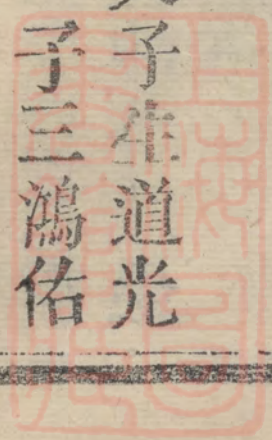 子生道光
子三鴻佑